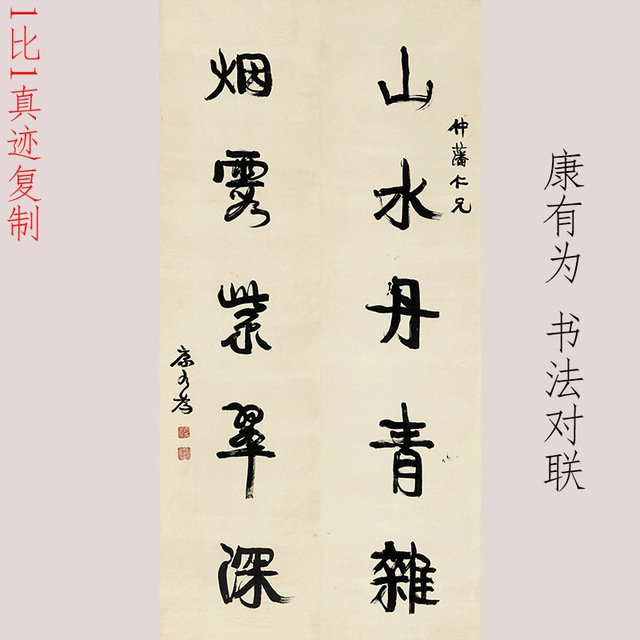 1比1真迹复制
康有为 书法对联
山水丹青雜
仲藩仁兄
烟雲紫翠深
康有為